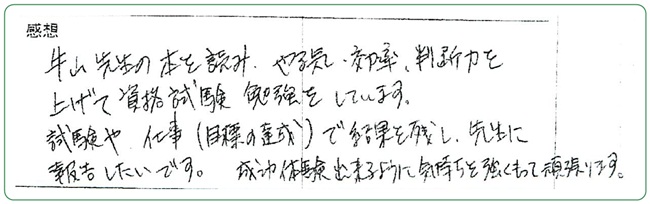 感想
牛山先生の本を読み、やる気・効率、判断力を
上げて資格試験勉強をしています。
試験や仕事(目標の達成)で結果を残し、先生に
報告したいです。 成功体験出来るように気持ちを強くもって頑張ります。